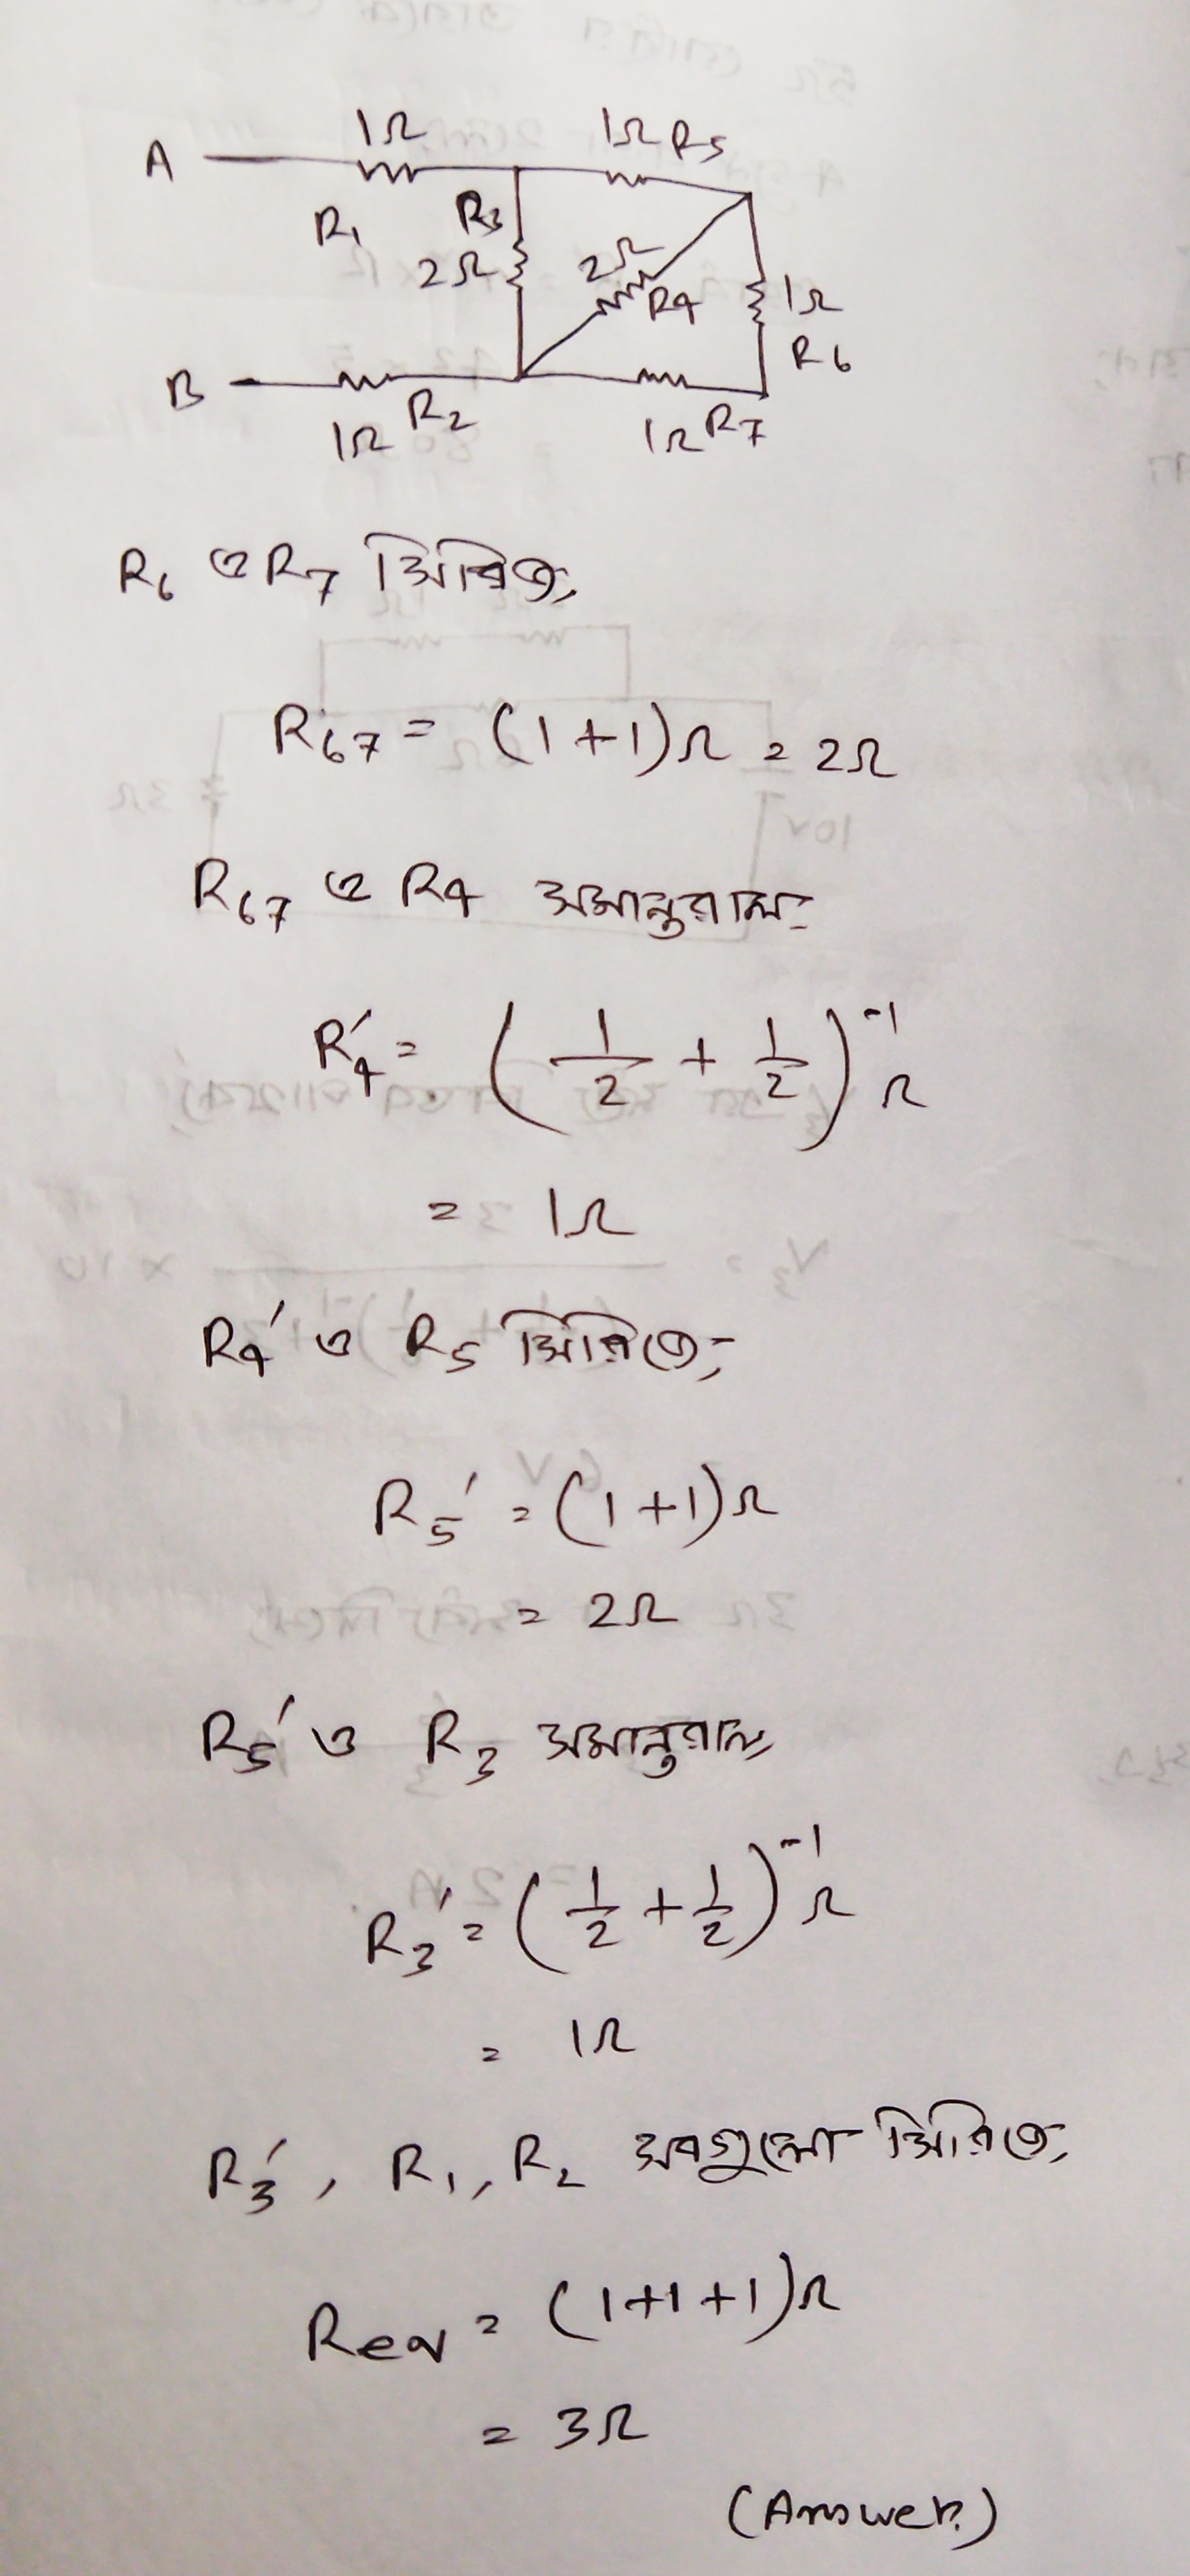 1Ω 1Ω R5
A
R1 R3
2Ω 2Ω
R4 1Ω
R6
B
1Ω R2 1Ω R7
R6 ও R7 সিরিজে,
R67 = (1+1)Ω = 2Ω
R67 ও R4 সমান্তরালে
R4' = (1/2 + 1/2)^-1 Ω
= 1Ω
R4' ও R5 সিরিজে,
R5' = (1+1)Ω
= 2Ω
R5' ও R3 সমান্তরালে,
R3' = (1/2 + 1/2)^-1 Ω
= 1Ω
R3', R1, R2 সবগুলো সিরিজে,
Req = (1+1+1)Ω
= 3Ω
(Answer.)